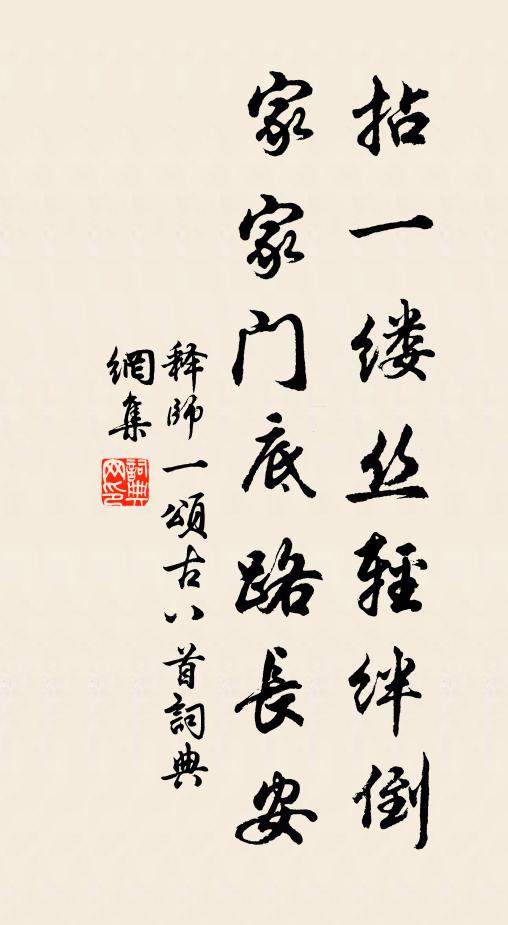 拈一缕丝轻绊倒
家家门底路长安
释师一颂古八首词典
網集
詞典網印